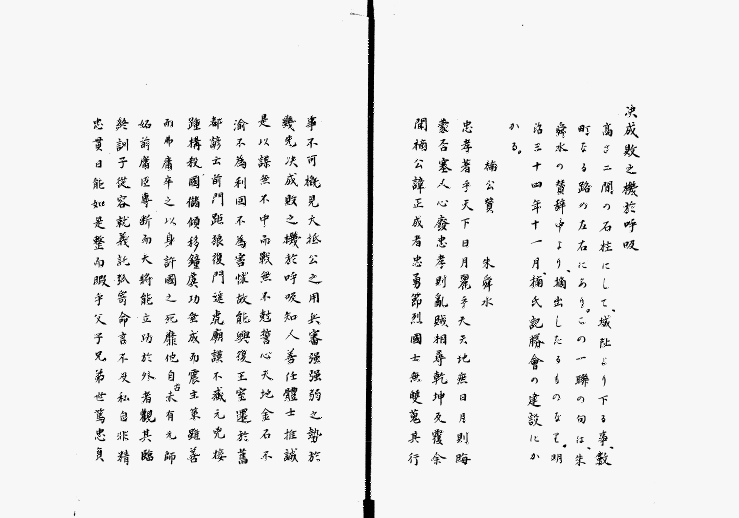 決成敗之機於呼吸
高さ二間の石柱にして、城趾より下る事、數
町なる路の左右にあり。この一聯の句は、朱
舜水の贊辞中より、摘出したるものなて。明
治三十四年十一月、楠氏記勝會の建設にか
かる。
楠公贊　朱舜水
忠孝著乎天下日月麗乎天天地無日月則晦
蒙否塞人心廢忠孝則亂賊相尋乾坤反覆余
聞楠公諱正成者忠勇節烈國士無雙蒐其行
事不可概見大抵公之用兵審强弱之勢於
幾先決成敗之機於呼吸知人善任體士推誠
是以謀無不中而戰無不尅誓心天地金石不
渝不為利回不為害怵故能興復王室還於舊
都諺云前門拒狼後門進虎廟謨不臧元兇接
踵構殺國儲傾移鐘虡功垂成而震主策雖善
而弗庸自古未有元師
妬前庸臣專断而大將能立功於外者卒之以身許國之死靡他觀其臨
終訓子從容就義託孤寄命言不及私自非精
忠貫日能如是整而暇乎父子兄弟世篤忠貞